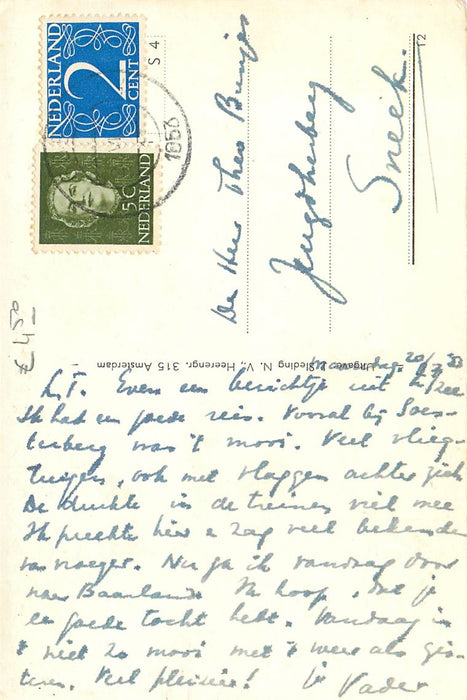 NEDERLAND
2
CENT
5C
NEDERLAND
1953
S 4
T2
Den Heer Theo Buijs
Jeugdherberg
Sneek.
£ 4.50
Uitgave: Sleding N. V., Heerengr. 315 Amsterdam
Maandag 20/7 '53
L.T. Even een berichtje uit
Ik had een goede reis. Vooral bij Soes-
terberg was 't mooi. Veel vlieg-
tuigen, ook met vlaggen achter zich
De drukte in de treinen viel mee
Ik preekte hier en zag veel bekenden
van vroeger. Nu ga ik vandaag door
naar Baarland. Ik hoop, dat je
een goede tocht hebt. Vandaag is
't niet zo mooi met 't weer als gis-
teren. Veel plezier! je Vader